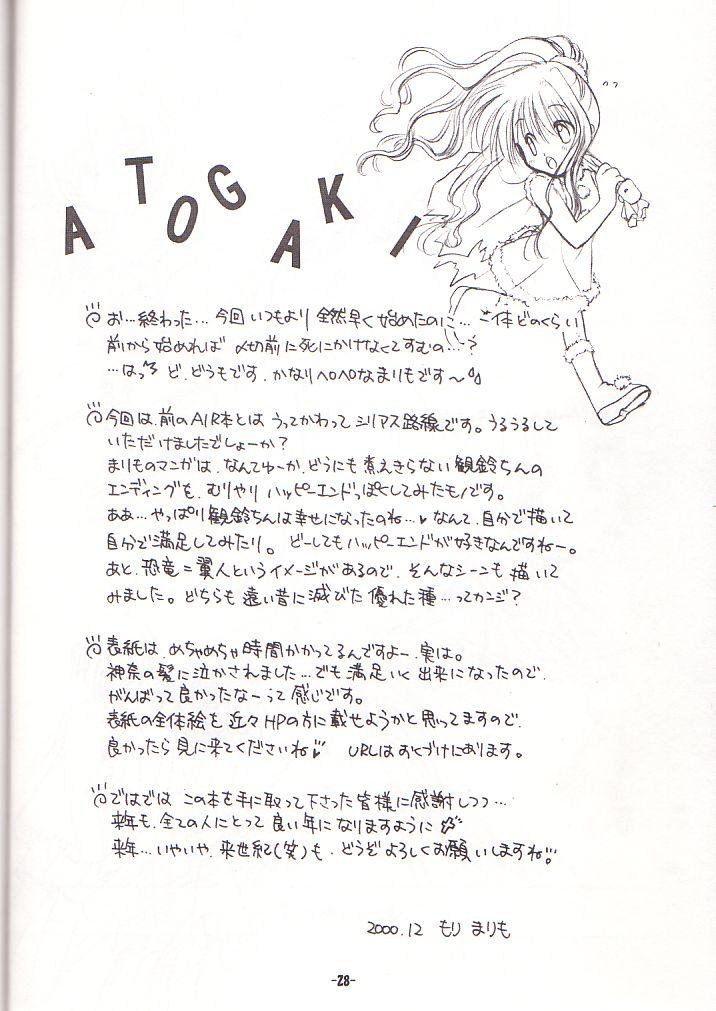 ATOGAKI
お…終わった… 今回いつもより全然早く始めたのに… 一体どのくらい
前から始めれば〆切前に死にかけなくてすむの…?
…はっ ど、どうもです、かなりヘロヘロなまりもです〜
今回は、前のAIR本とはうってかわってシリアス路線です。うるうるして
いただけましたでしょーか?
まりものマンガは、なんてゆーか、どうにも煮えきらない観鈴ちんの
エンディングを、むりやりハッピーエンドっぽくしてみたモノです。
ああ…やっぱり観鈴ちんは幸せになったのね…♥なんて、自分で描いて
自分で満足してみたり。どーしてもハッピーエンドが好きなんですねー。
あと、恐竜=翼人というイメージがあるので、そんなシーンも描いて
みました。どちらも遠い昔に滅びた優れた種…ってカンジ?
表紙は、めちゃめちゃ時間かかってるんですよー、実は。
神奈の髪に泣かされました…でも満足いく出来になったので、
がんばって良かったなーって感じです。
表紙の全体絵を近々HPの方に載せようかと思ってますので、
良かったら見に来てくださいね♥ URLはおくづけにあります。
ではでは この本を手に取って下さった皆様に感謝しつつ…
来年も、全ての人にとって良い年になりますように
来年…いやいや、来世紀(笑)も、どうぞよろしくお願いしますね!
2000.12 もり まりも
-28-